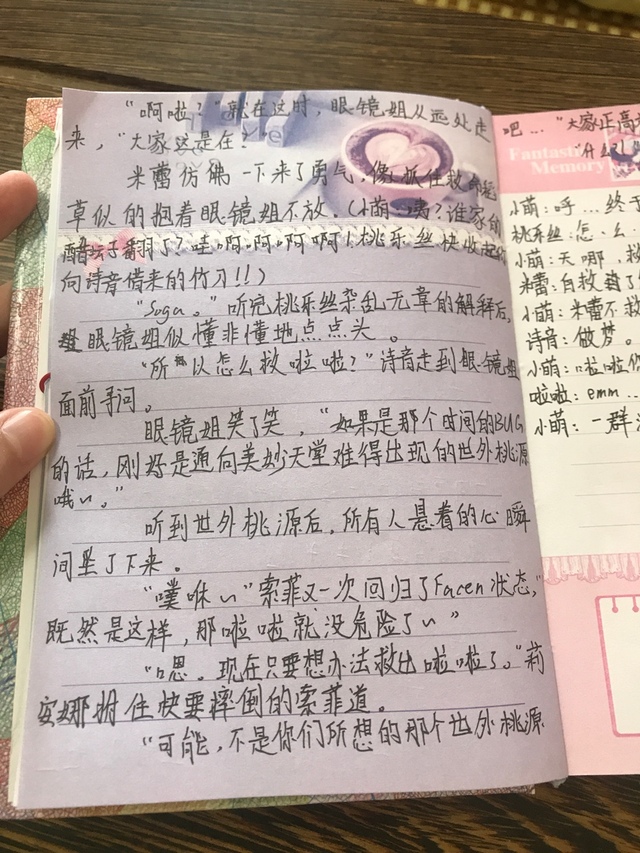 "啊啦?"就在这时,眼镜姐从远处走
来,"大家这是在?"
米蕾仿佛一下来了勇气,像抓住救命稻
草似的抱着眼镜姐不放。(小萌:咦?谁家的
醋坛子翻了?哇啊啊啊啊!桃乐丝快收起你
向诗音借来的竹刀!!)
"Soga。"听完桃乐丝杂乱无章的解释后,
眼镜姐似懂非懂地点点头。
"所以怎么救啦啦?"诗音走到眼镜姐
面前寻问。
眼镜姐笑了笑,"如果是那个时间的BUG
的话,刚好是通向美妙天堂难得出现的世外桃源
哦~。"
听到世外桃源后,所有人悬着的心瞬
间垩了下来。
"噗咻~"索菲又一次回归了Facen状态,"
既然是这样,那啦啦就没危险了~"
"嗯。现在只要想办法救出啦啦了。"莉
安娜拊住快要摔倒的索菲道。
"可能,不是你们所想的那个世外桃源
吧…"大家正高
"什么
Fantast
Memory
小萌:呼…终于
桃乐丝:怎么
小萌:天哪,救
米蕾:自救当了
小萌:米蕾不救
诗音:做梦。
小萌:啦啦你
啦啦:emm…
小萌:一群